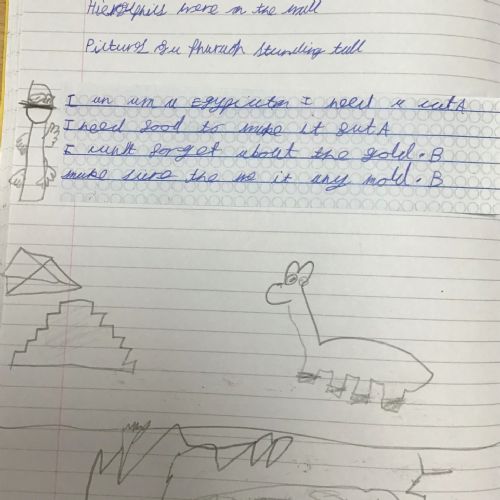 Hieroglphics were on the wall
Pictures ou Pharaoh standing tall
I an um a egyptian I need a cut A
I need food to make it gut A
I wont forget about the gold. B
make sure the ne it any mold. B